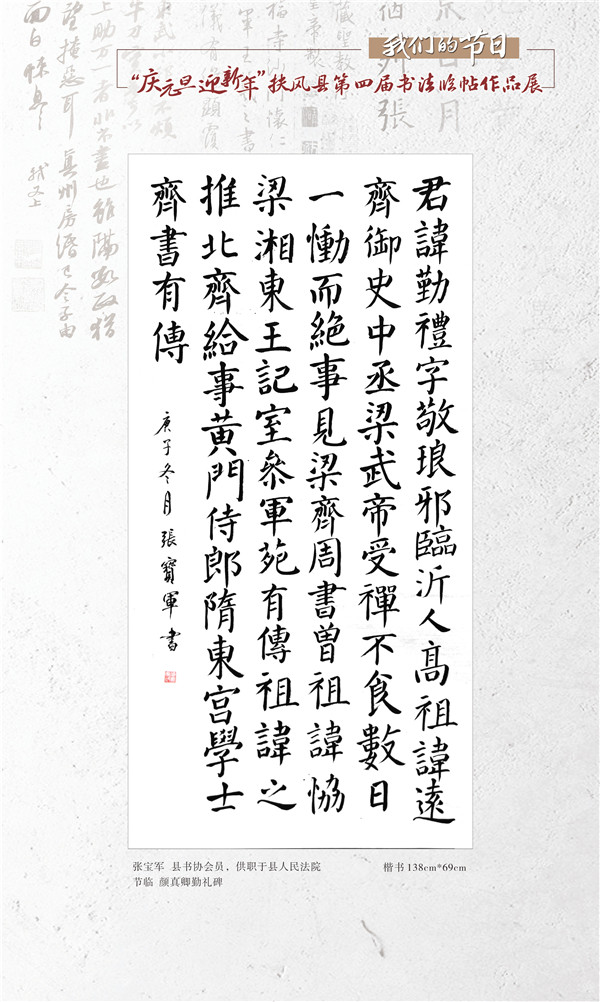 我们的节日
“庆元旦迎新年”扶风县第四届书法临帖作品展
君諱勤禮字敬琅邪臨沂人高祖諱遠
齊御史中丞梁武帝受禪不食數日
一慟而絕事見梁齊周書曾祖諱協
梁湘東王記室參軍苑有傳祖諱之
推北齊給事黃門侍郎隋東宮學士
齊書有傳
庚子冬月張寶軍書
张宝军 县书协会员，供职于县人民法院
节临 颜真卿勤礼碑
楷书138cm*69cm